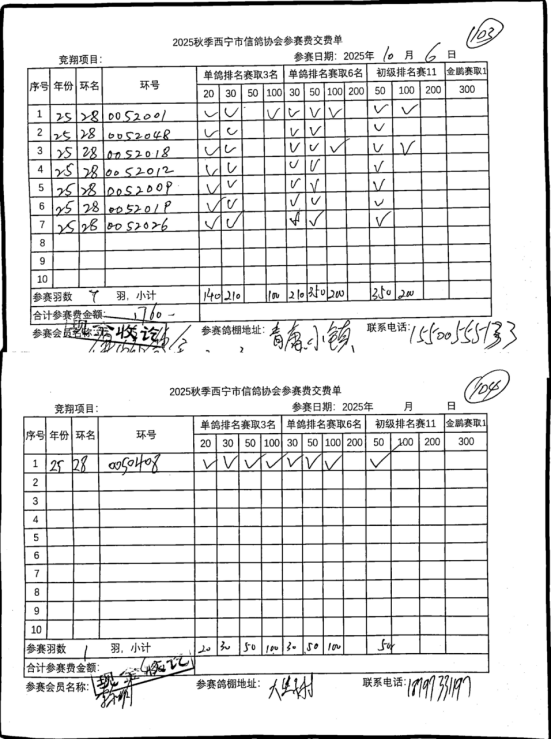 103
2025秋季西宁市信鸽协会参赛费交费单
竞翔项目： 参赛日期：2025年 10 月 6 日
序号 年份 环名 环号 单鸽排名赛取3名 单鸽排名赛取6名 初级排名赛11 金鹏赛取1
20 30 50 100 30 50 100 200 50 100 200 300
1 25 28 0052001 ✓ ✓ ✓ ✓ ✓ ✓ ✓ ✓
2 25 28 0052048 ✓ ✓ ✓ ✓ ✓
3 25 28 0052018 ✓ ✓ ✓ ✓ ✓ ✓ ✓
4 25 28 0052012 ✓ ✓ ✓ ✓ ✓
5 25 28 0052009 ✓ ✓ ✓ ✓ ✓
6 25 28 0052019 ✓ ✓ ✓ ✓ ✓
7 25 28 0052026 ✓ ✓ ✓ ✓ ✓
8
9
10
参赛羽数 7 羽，小计 140 210 100 210 350 200 350 200
合计参赛费金额： 1760-
参赛会员名称： 现金收讫 参赛鸽棚地址： 青唐小镇 联系电话：
104
2025秋季西宁市信鸽协会参赛费交费单
竞翔项目： 参赛日期：2025年 月 日
序号 年份 环名 环号 单鸽排名赛取3名 单鸽排名赛取6名 初级排名赛11 金鹏赛取1
20 30 50 100 30 50 100 200 50 100 200 300
1 25 28 0050408 ✓ ✓ ✓ ✓ ✓ ✓ ✓ ✓
2
3
4
5
6
7
8
9
10
参赛羽数 1 羽，小计 20 30 50 100 30 50 100 50
合计参赛费金额：
参赛会员名称： 现金收讫 参赛鸽棚地址： 联系电话：